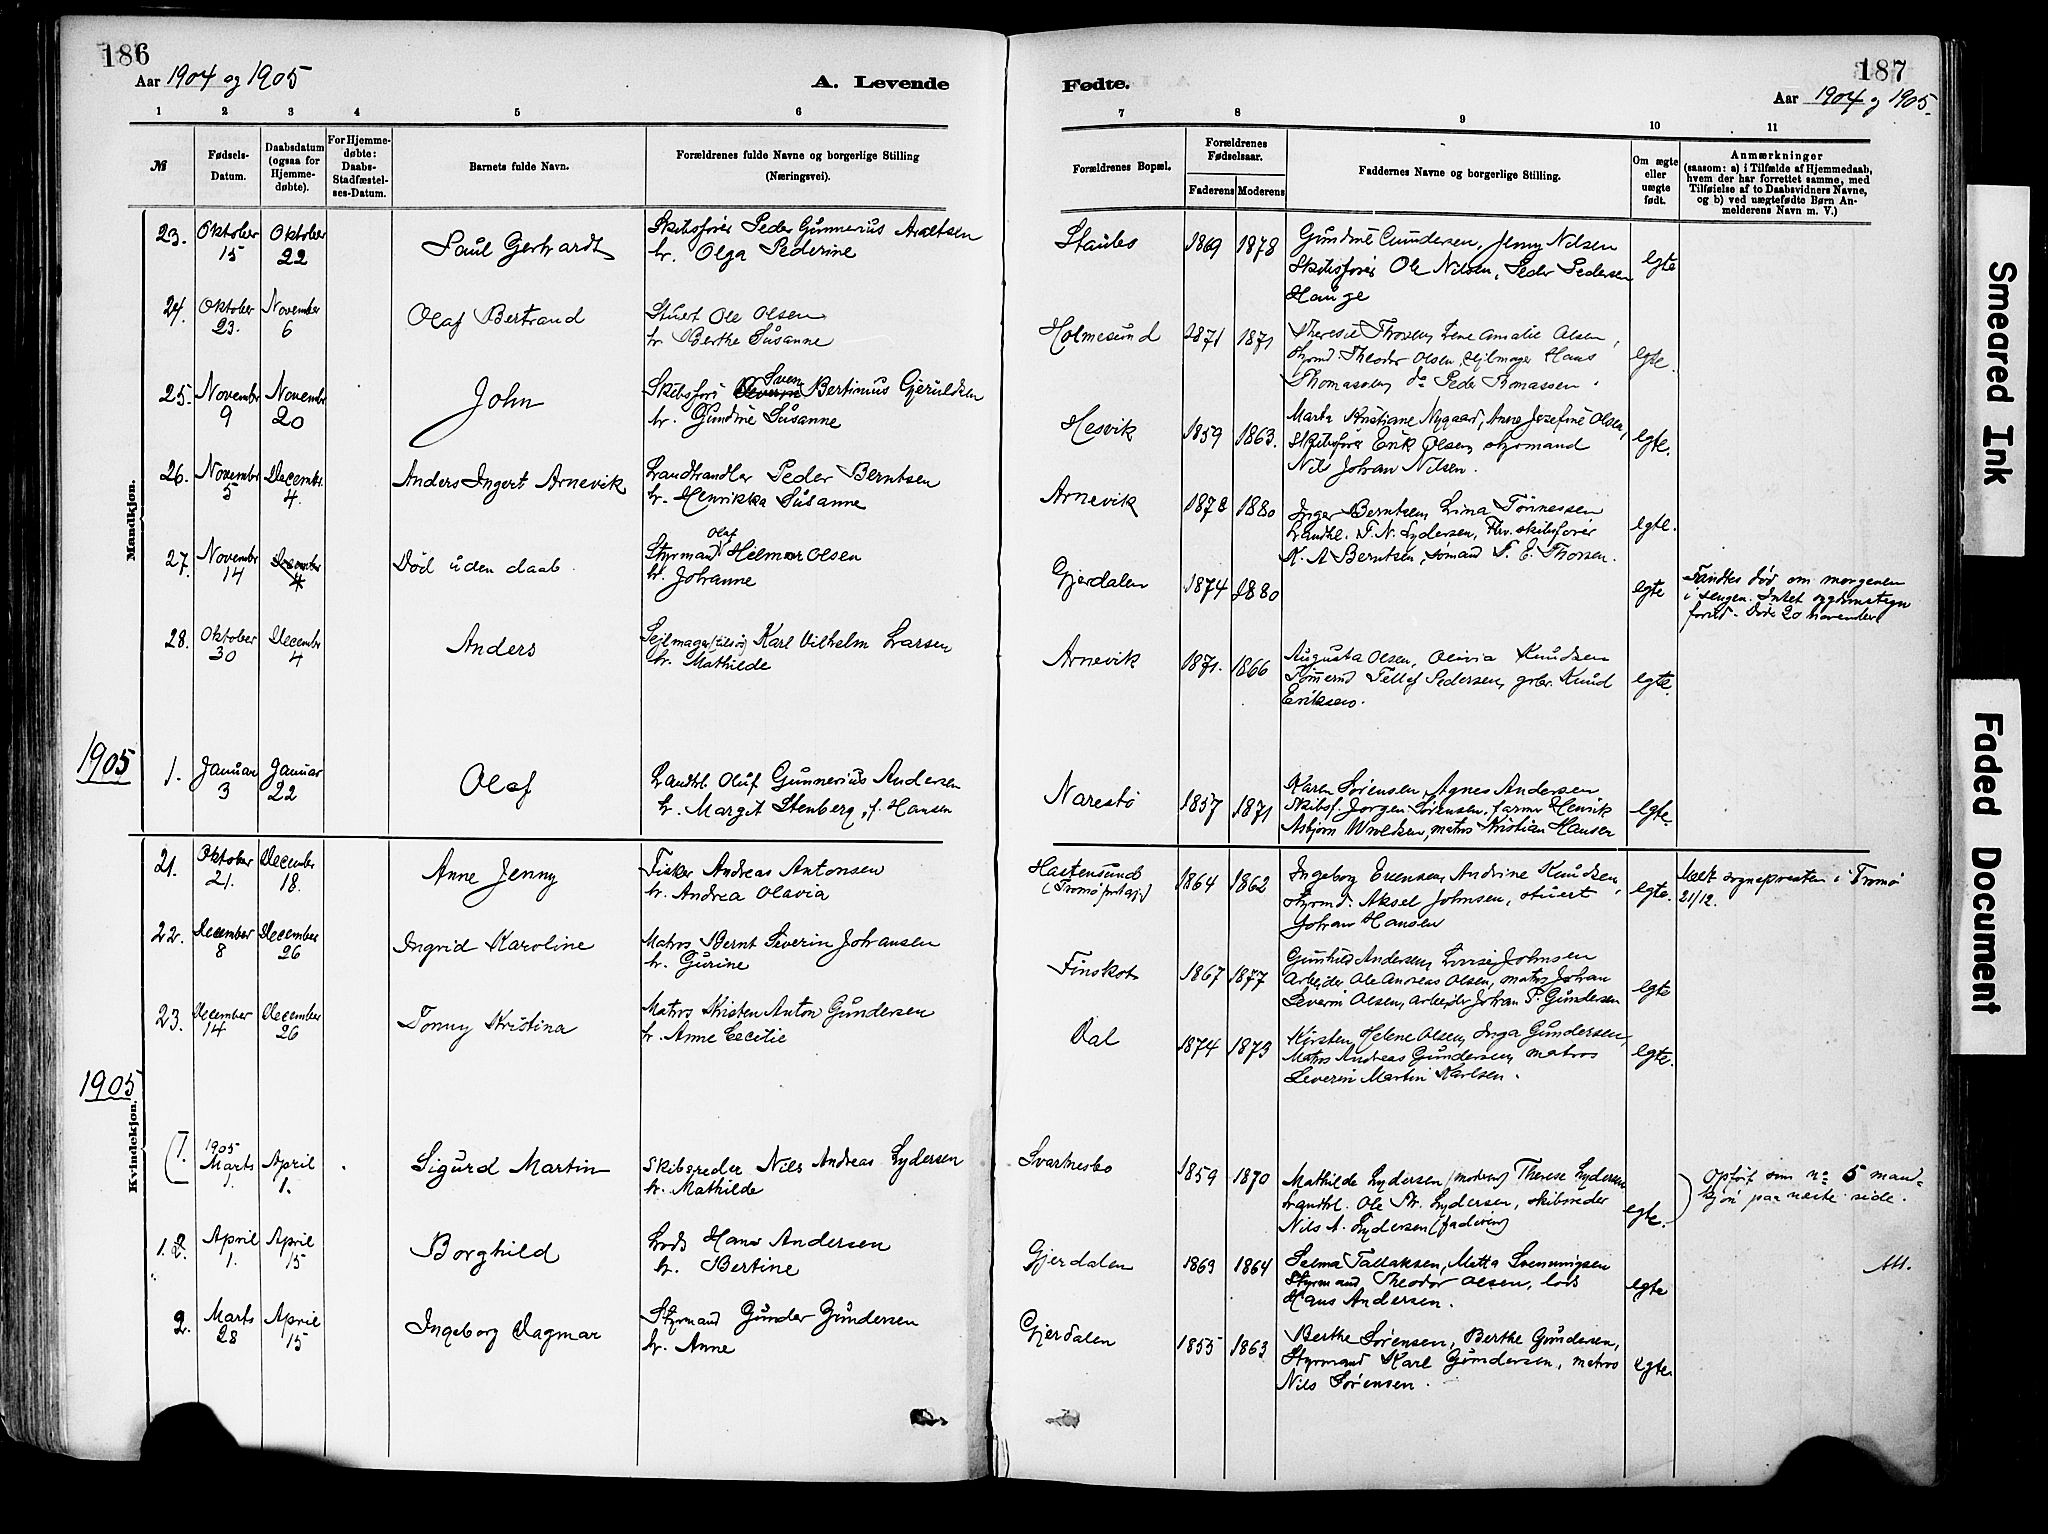 186
Aar 1904 og 1905
A. Levende
1 2 3 4 5 6
№
Fødsels-
Datum.
Daabsdatum
(ogsaa for
Hjemme-
døbte).
For Hjemme-
døbte:
Daabs-
Stadfæstel-
ses-Datum.
Barnets fulde Navn.
Forældrenes fulde Navne og borgerlige Stilling
(Næringsvei).
Mandkjøn.
23. Oktober 15 Oktober 22
Paul Gerhardt
Skibsfører Peder Gunnerius
h. Olga Pederine
24. Oktober 23. November 6
Olaf Bertrand
Stuert Ole Olsen
h. Berthe Susanne
25. Novembr 9 Novembr 20
John
Skibsfører Sven Bertinius Gjeruldsen
h. Gundine Susanne
26. Novembr 5 Decembr. 4.
Anders Ingert Arnevik
Landhandler Peder Berntsen
h. Henrikka Susanne
27. Novembr 14 December 4
Død uden daab.
Styrmand Olaf Helmer Olsen
h. Johanne
28. Oktober 30 December 4
Anders
Sejlmager (tilsjø) Karl Vilhelm Larsen
h. Mathilde
1905
1. Januar 3 Januar 22
Olaf
Landhl. Oluf Gunnerius Andersen
h. Margit Stenberg, f. Hansen
21. Oktober 21. December 18.
Anne Jenny
Fisker Andreas Antonsen
h. Andrea Olavia
22. December 8 December 26
Ingrid Karoline
Matros Bernt Severin Johansen
h. Gurine
23. December 14 December 26
Tonny Kristina
Matros Kristen Anton Gundersen
h. Anne Cecilie
1905
Kvindekjøn.
(1. 1905 Marts 1. April 1.
Sigurd Martin
Skibsreder Nils Andreas Lydersen
h. Mathilde
1. 2. April 1. April 15
Borghild
Lods Hans Andersen
h. Bertine
2. Marts 28 April 15
Ingeborg Dagmar
Styrmand Gunder Gundersen
h. Anne
187
Fødte.
Aar 1904 og 1905.
7 8 9 10 11
Forældrenes Bopæl.
Forældrenes
Fødselsaar.
Faderens Moderens
Faddernes Navne og borgerlige Stilling.
Om ægte
eller
uægte
født.
Anmærkninger
(saasom: a) i Tilfælde af Hjemmedaab,
hvem der har forrettet samme, med
Tilføielse af to Daabsvidners Navne,
og b) ved uægtefødte Børn An-
melderens Navn m. V.)
Staubø 1869 1878
Gundine Gundersen, Jenny Nilsen
Skibsfører Ole Nilsen, Peder Pedersen
Hauge
egte
Holmesund 1871 1871
Therese Thorsen, Lene Amalie Olsen,
styrmd. Theodor Olsen, sejlmager Hans
Thomassen, do Peder Tomassen.
egte.
Hesvik 1859 1863.
Marta Kristiane Nygaard, Anne Josefine Olsen,
Skibsfører Erik Olsen, styrmand
Nils Johan Nilsen.
egte.
Arnevik 1878 1880
Inger Berntsen, Lina Tønnessen
Landhl. T. N. Lydersen, skibsfører
K. A. Berntsen, sømand T. E. Thorsen.
egte.
Gjerdalen 1874 1880
egte
Fandtes død om morgenen
i sengen. Intet sygdomstegn
forud. Døde 20 november
Arnevik 1871. 1866
Augusta Olsen, Olivia Knudsen
Tømmermd Tellef Pedersen, grbr. Knud
Eriksen.
egte.
Narestø 1857 1871
Karen Sørensen, Agnes Andersen
Skibsf. Jørgen Sørensen, farmer Henrik
Asbjørn Wroldsen, matros Kristian Hansen
egte.
Hastensund
1864 1862
Ingeborg Evensen, Andrine Knudsen,
styrmd. Aksel Johnsen, stuert
Johan Hansen
egte.
Meldt sognepresten i Tromø
21/12.
Finskot 1867 1877
Gunhild Andersen, Lovise Johnsen
Arbejder Ole Andreas Olsen, matros Johan
Severin Olsen, arbejder Johan P. Gundersen
egte
Dal 1874 1873
Kirsten Helene Olsen, Inga Gundersen,
Matros Andreas Gundersen, matros
Severin Martin Karlsen.
egte.
Svartnesbo 1859 1870
Mathilde Lydersen (moderen) Therese Lydersen
Landhl. Ole Lydersen, skibsreder
Nils A. Lydersen (faderen)
egte.
Opført som no 5 mand-
kjøn paa næste side.
Gjerdalen 1863 1864
Selma Tallaksen, Metta Svenningsen
Styrmand Theodor Olsen, lods
Hans Andersen.
egte
Gjerdalen 1855 1863
Berthe Sørensen, Berthe Gundersen,
Styrmand Karl Gundersen, matros
Nils Sørensen.
egte.
Smeared Ink
Faded Document